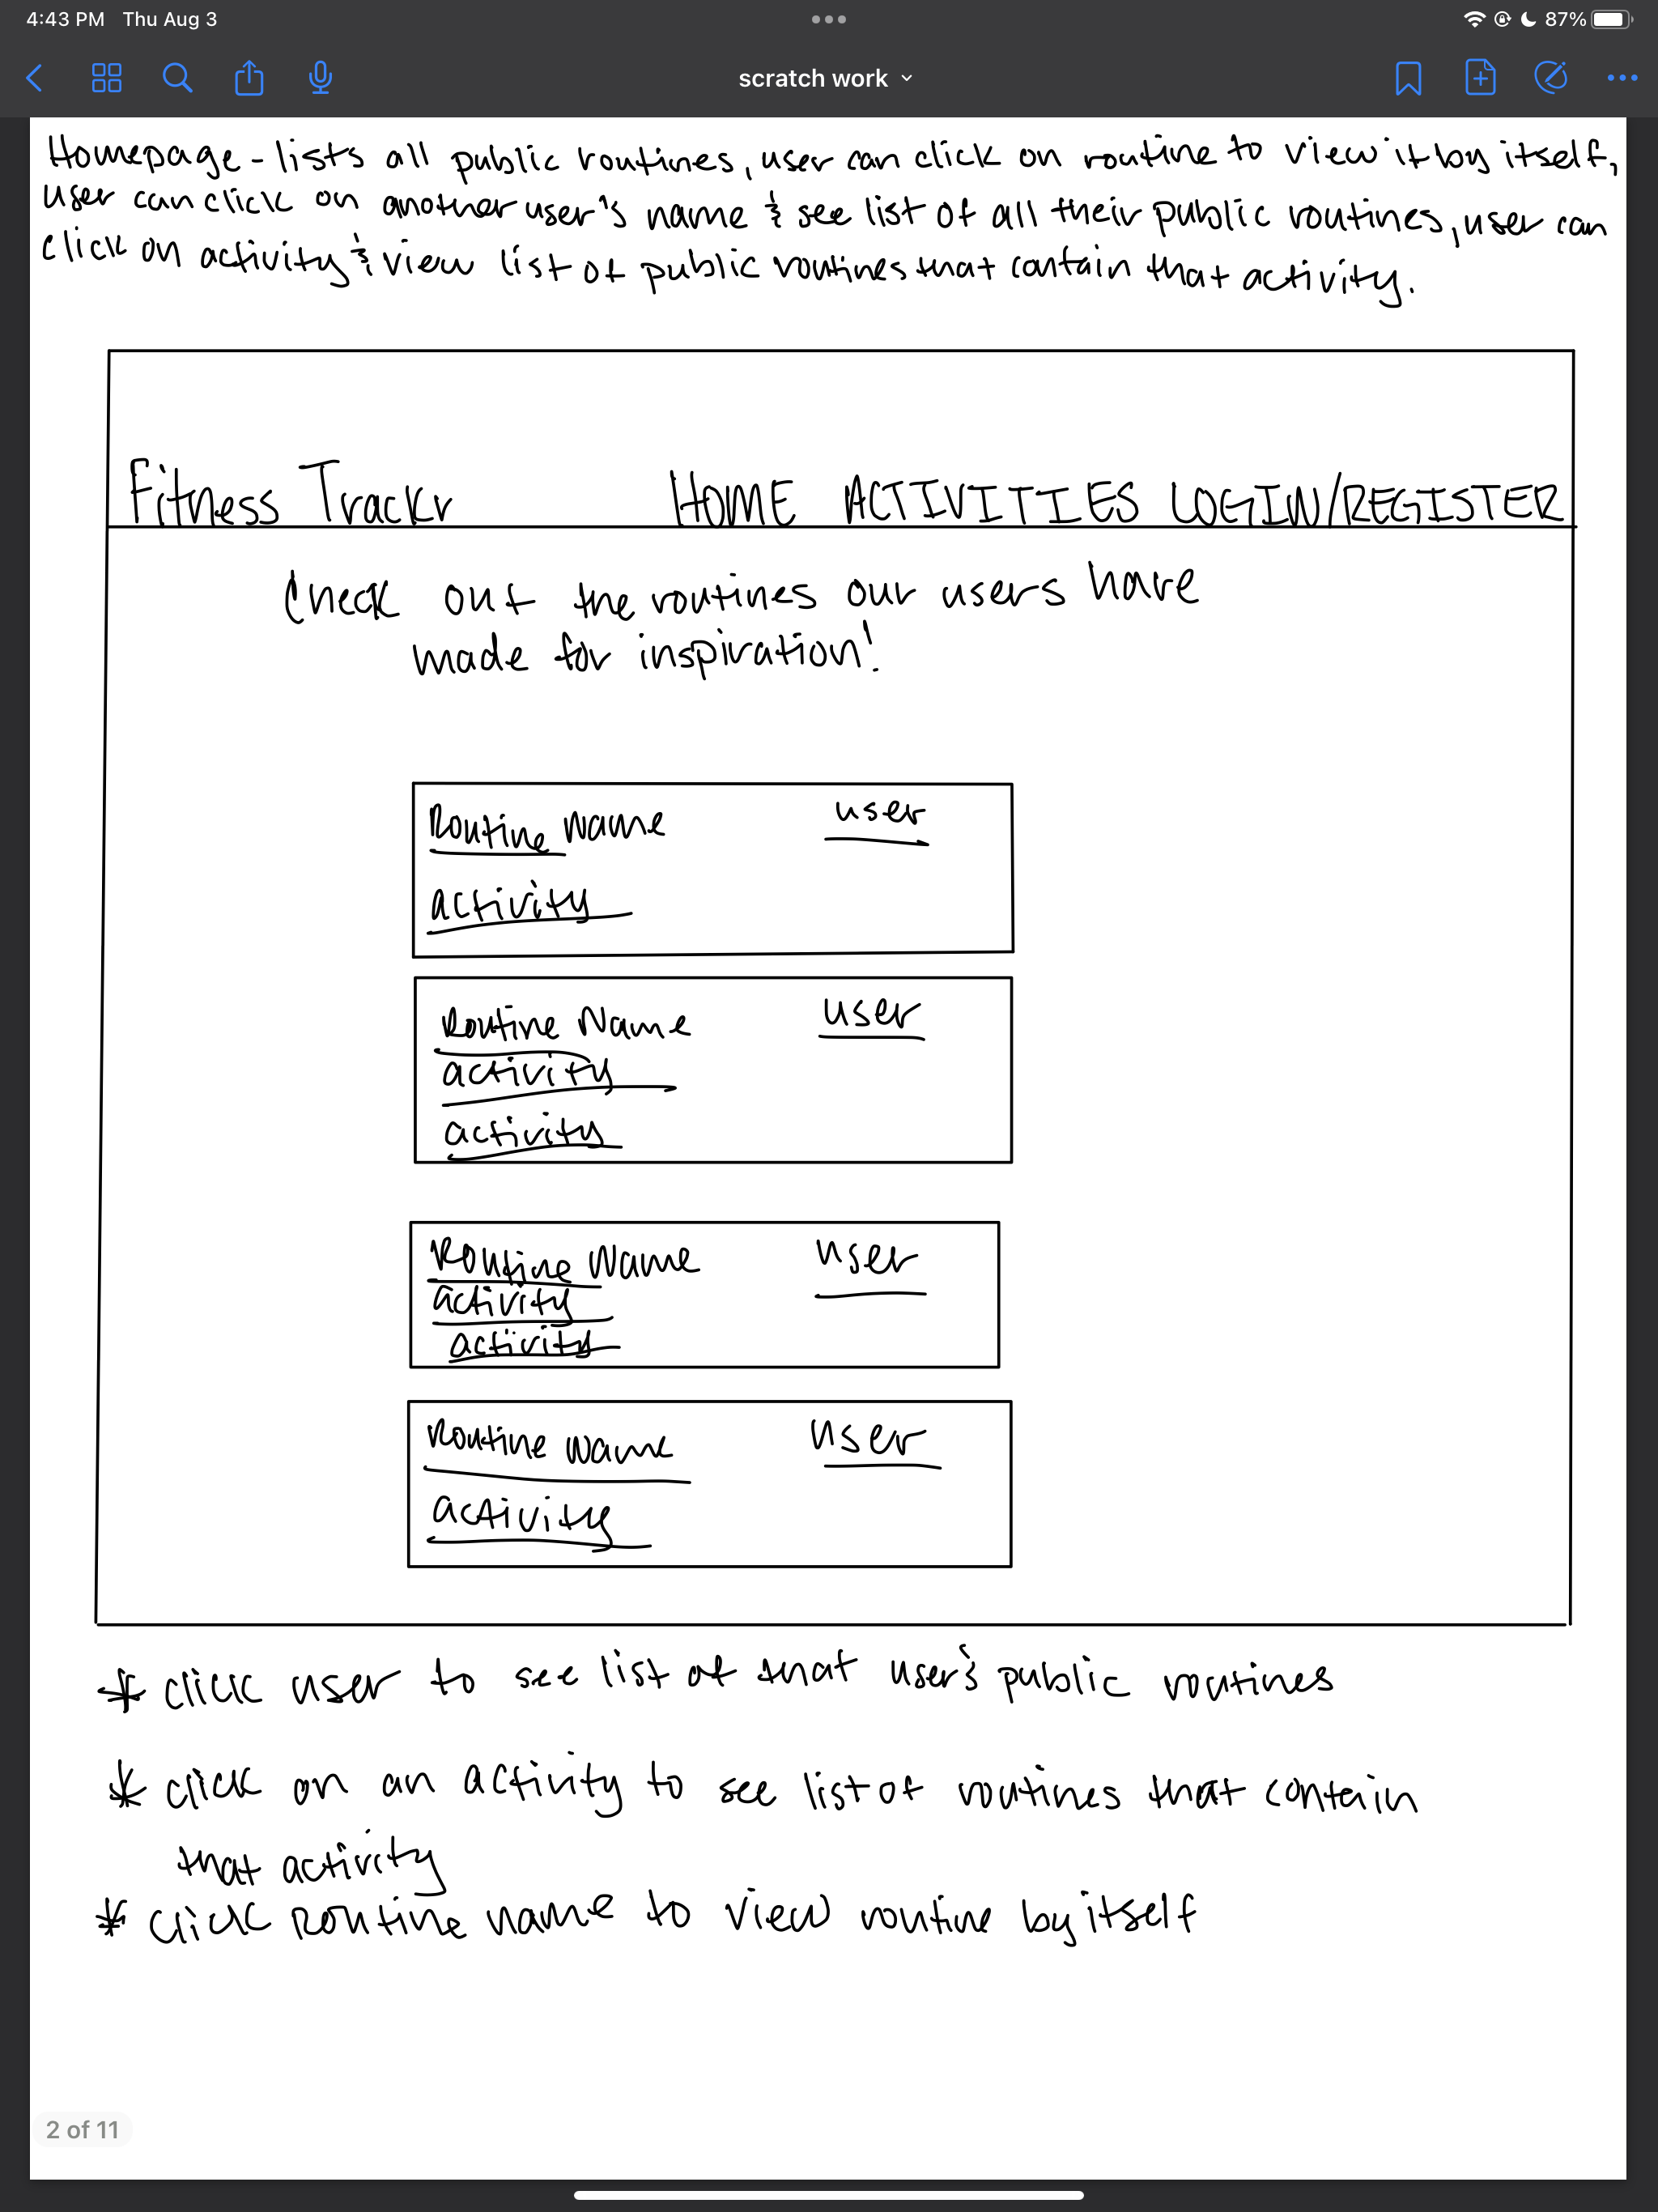 4:43 PM Thu Aug 3
87%
scratch work
Homepage - lists all public routines, user can click on routine to view it by itself,
user can click on another user's name & see list of all their public routines, user can
click on activity & view list of public routines that contain that activity.
Fitness Trackr HOME ACTIVITIES LOGIN/REGISTER
Check out the routines our users have
made for inspiration!
Routine Name user
activity
Routine Name user
activity
activity
Routine Name user
activity
activity
Routine Name user
activity
* click user to see list of that user's public routines
* click on an activity to see list of routines that contain
that activity
* click routine name to view routine by itself
2 of 11